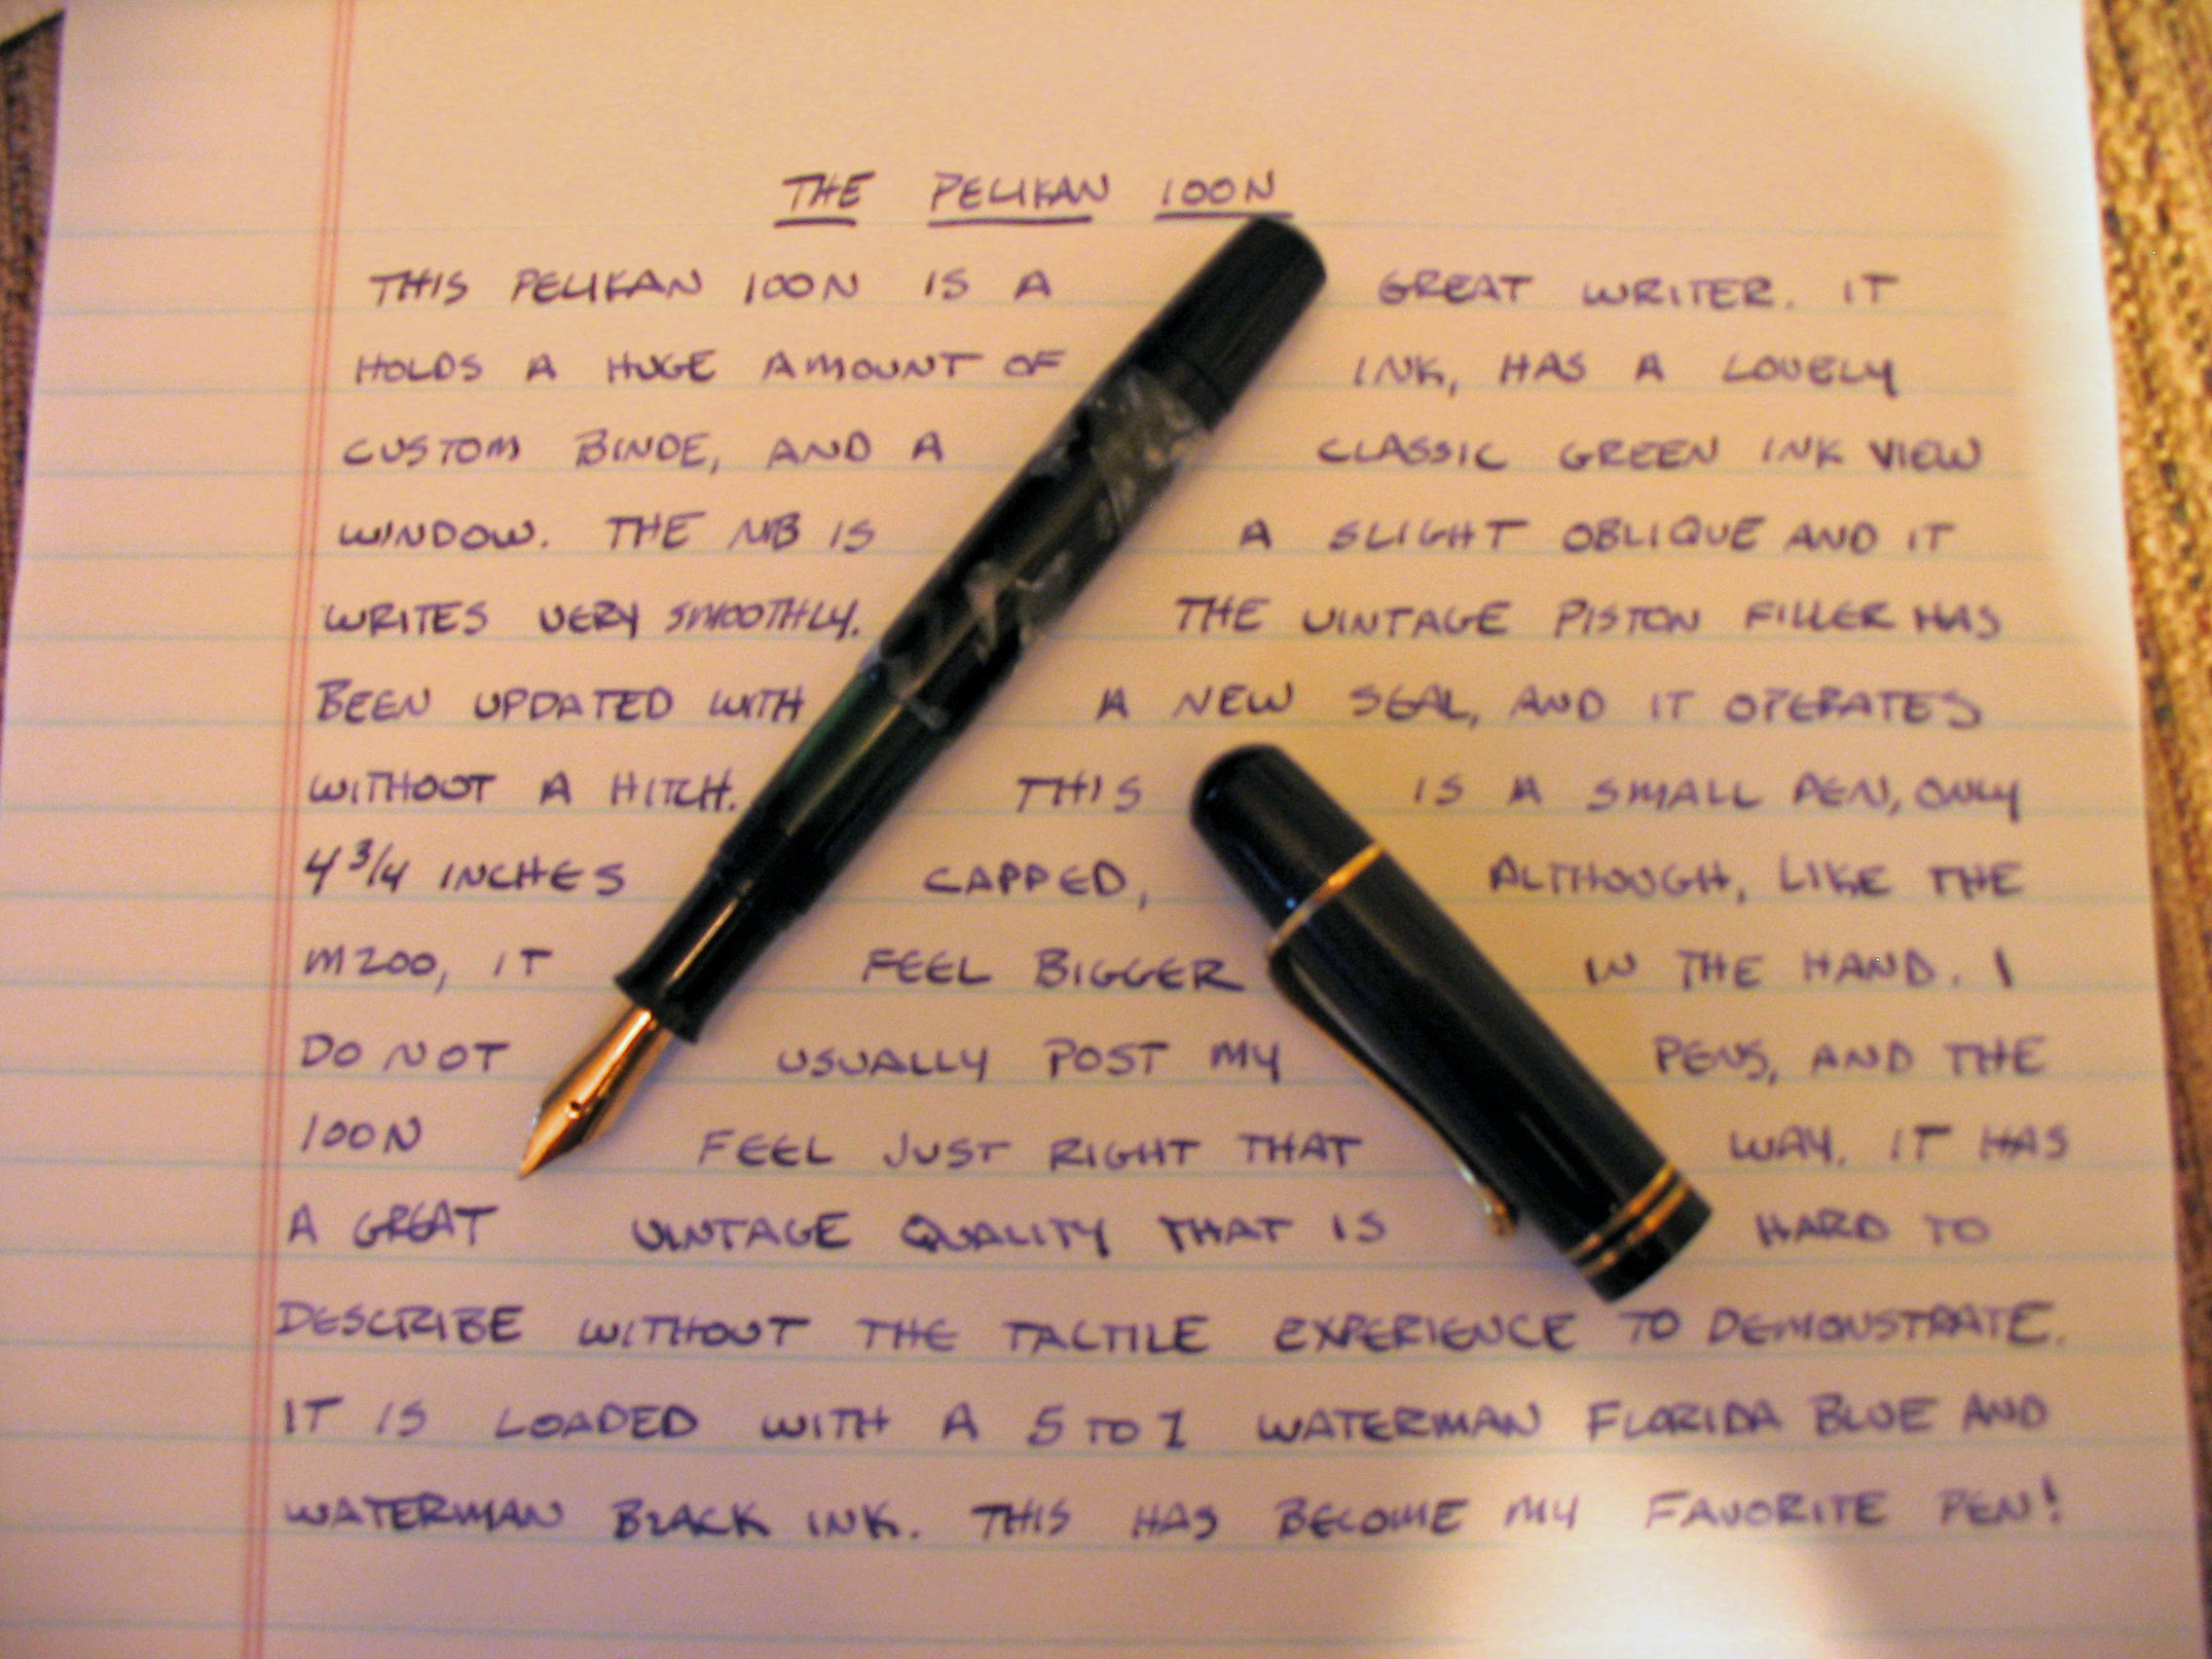 THE PELIKAN 100N
THIS PELIKAN 100N IS A GREAT WRITER. IT
HOLDS A HUGE AMOUNT OF INK, HAS A LOVELY
CUSTOM BINDE, AND A CLASSIC GREEN INK VIEW
WINDOW. THE NIB IS A SLIGHT OBLIQUE AND IT
WRITES VERY SMOOTHLY. THE VINTAGE PISTON FILLER HAS
BEEN UPDATED WITH A NEW SEAL, AND IT OPERATES
WITHOUT A HITCH. THIS IS A SMALL PEN, ONLY
4 3/4 INCHES CAPPED, ALTHOUGH, LIKE THE
M200, IT FEEL BIGGER IN THE HAND. I
DO NOT USUALLY POST MY PENS, AND THE
100N FEEL JUST RIGHT THAT WAY. IT HAS
A GREAT VINTAGE QUALITY THAT IS HARD TO
DESCRIBE WITHOUT THE TACTILE EXPERIENCE TO DEMONSTRATE.
IT IS LOADED WITH A 5 TO 1 WATERMAN FLORIDA BLUE AND
WATERMAN BLACK INK. THIS HAS BECOME MY FAVORITE PEN!